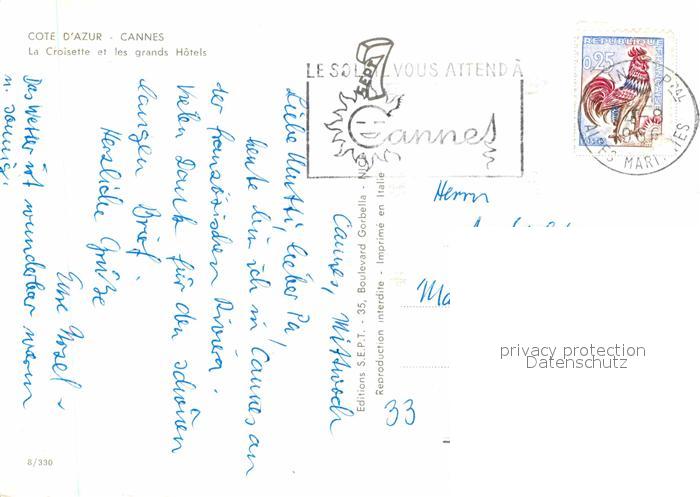 COTE D'AZUR - CANNES
La Croisette et les grands Hôtels
LE SOLEIL VOUS ATTEND À
Cannes
SEPT
REPUBLIQUE FRANÇAISE
0,25
ALPES MARITIMES
Cannes, Mittwoch
Liebe Mutti, lieber Pa,
heute bin ich in Cannes an
der französischen Riviera.
Vielen Dank für den schönen
langen Brief.
Herzliche Grüße
Eure
Das Wetter ist wunderbar warm
u. sonnig.
Editions S.E.P.T. - 35, Boulevard Gorbella - NICE
Reproduction interdite - Imprimé en Italie
Herrn
Ma
33
privacy protection
Datenschutz
8/330